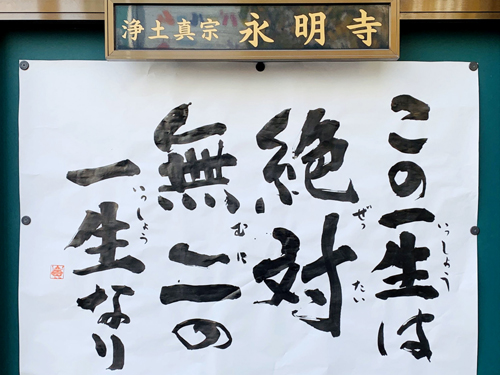 浄土真宗 永明寺
この一生は
絶対
無二の
一生なり
いっしょう
ぜっ
たい
むに
いっしょう